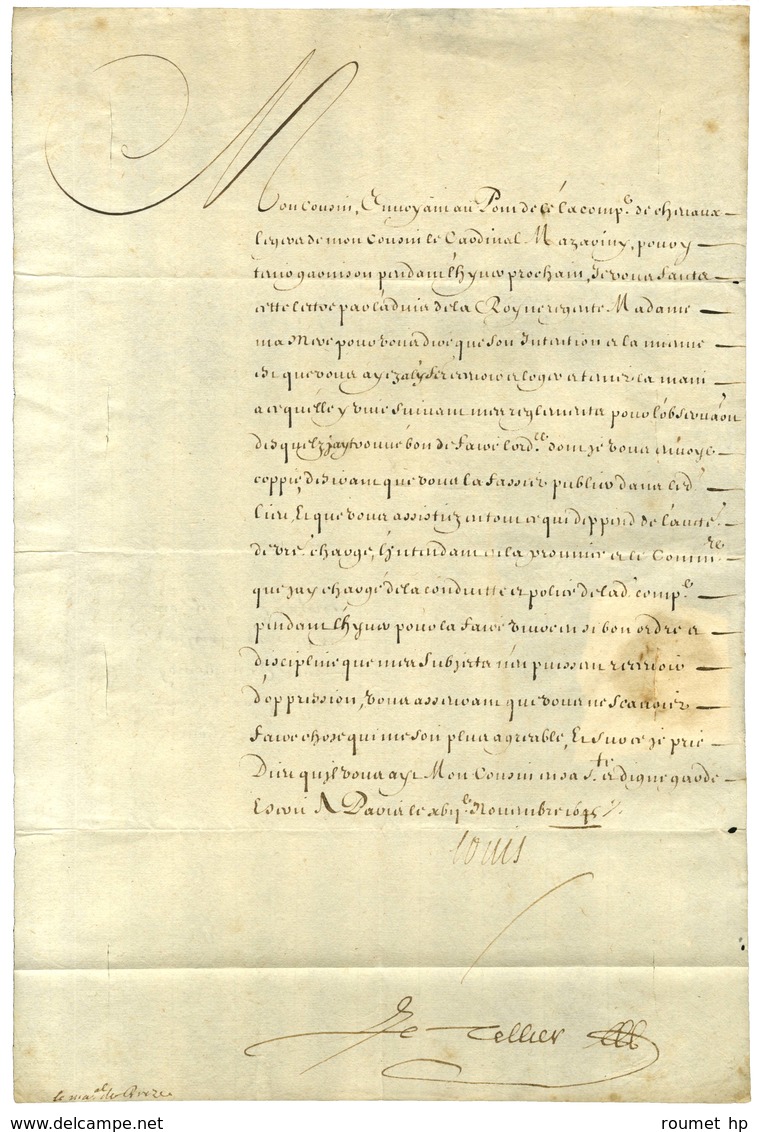 Mon Cousin, Envoyant au Pont de cé la comp.e de chevaux
legers de mon Cousin le Cardinal Mazariny, pour y
tenir garnison pendant l'hyver prochain, Je vous faict
cette lettre par l'advis de la Royne regente Madame
ma Mere pour vous dire que son Intention et la mienne
est que vous ayez à l'y recevoir et loger et tenir la main
a ce qu'elle y vive suivant mes reglements pour l'observation
desquelz j'ay trouvé bon de faire l'ord.ce dont je vous envoye
coppie desirant que vous la fassiez publier dans led.
lieu, Et que vous assistiez en tout ce qui deppend de l'aucté.
de vre. charge, l'Intendant en la province et le Comm.re
que j'ay chargé de la conduitte et police de lad. comp.e
pendant l'hyver pour la faire vivre en si bon ordre et
discipline que mes subjects n'en puissent recevoir
d'oppression, vous asseurant que vous ne scauriez
faire chose qui me soit plus agreable, Et sur ce je prie
Dieu qu'il vous ayt Mon Cousin en sa s.te et digne garde
Escrit A Paris le xbij.e Novembre 1645
Louis
Le Tellier
le ma.al de Breze
roumet hp